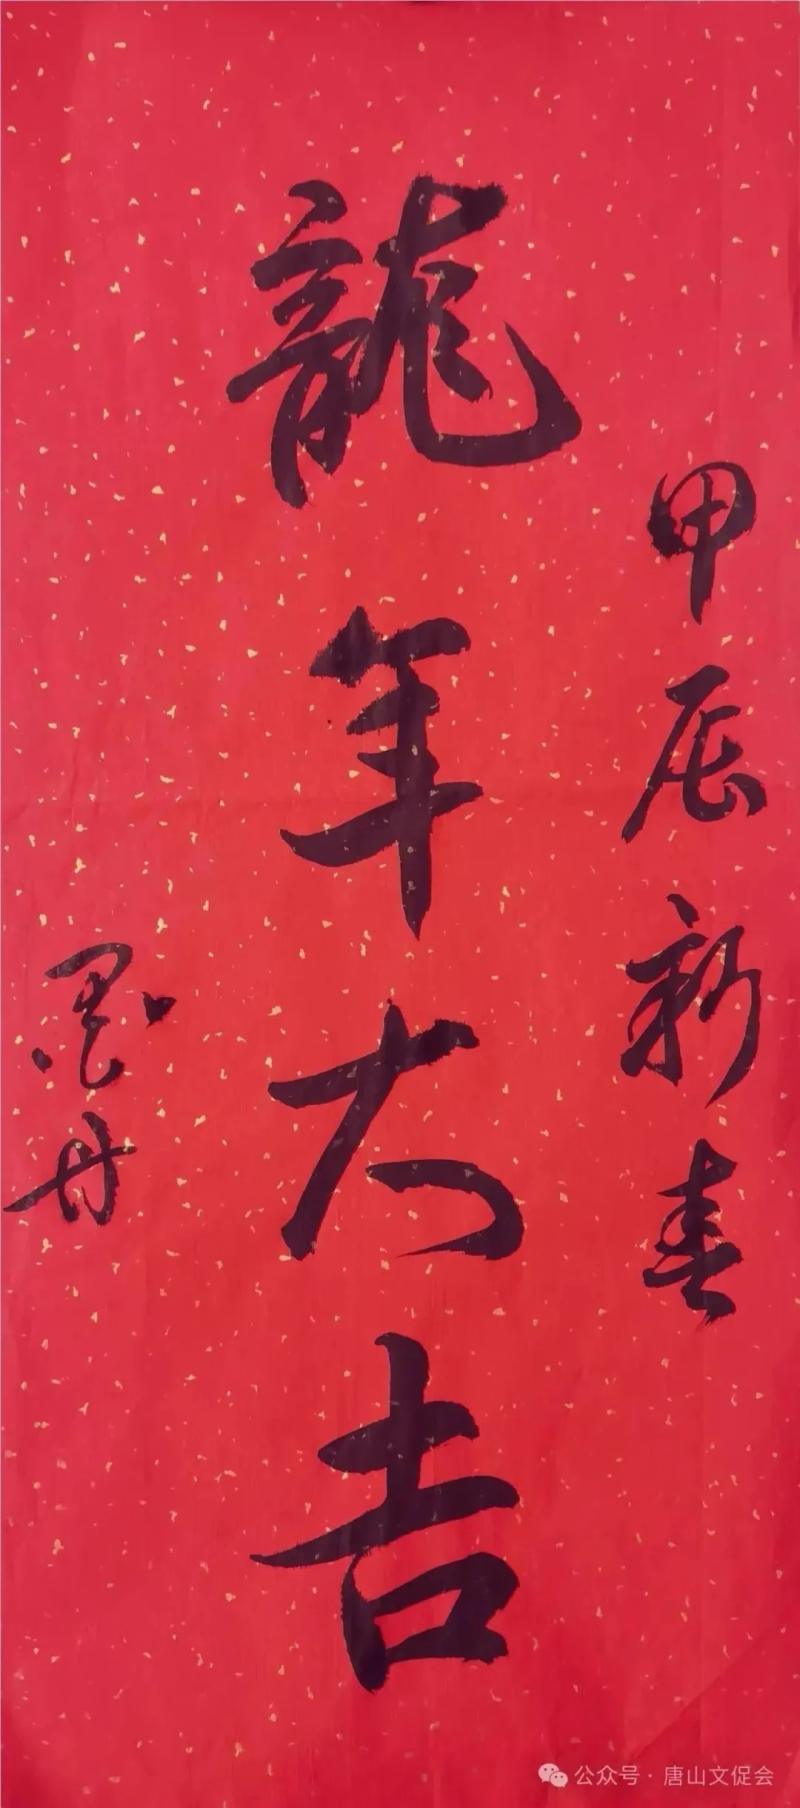 甲辰新春
龍年大吉
墨丹
公众号·唐山文促会